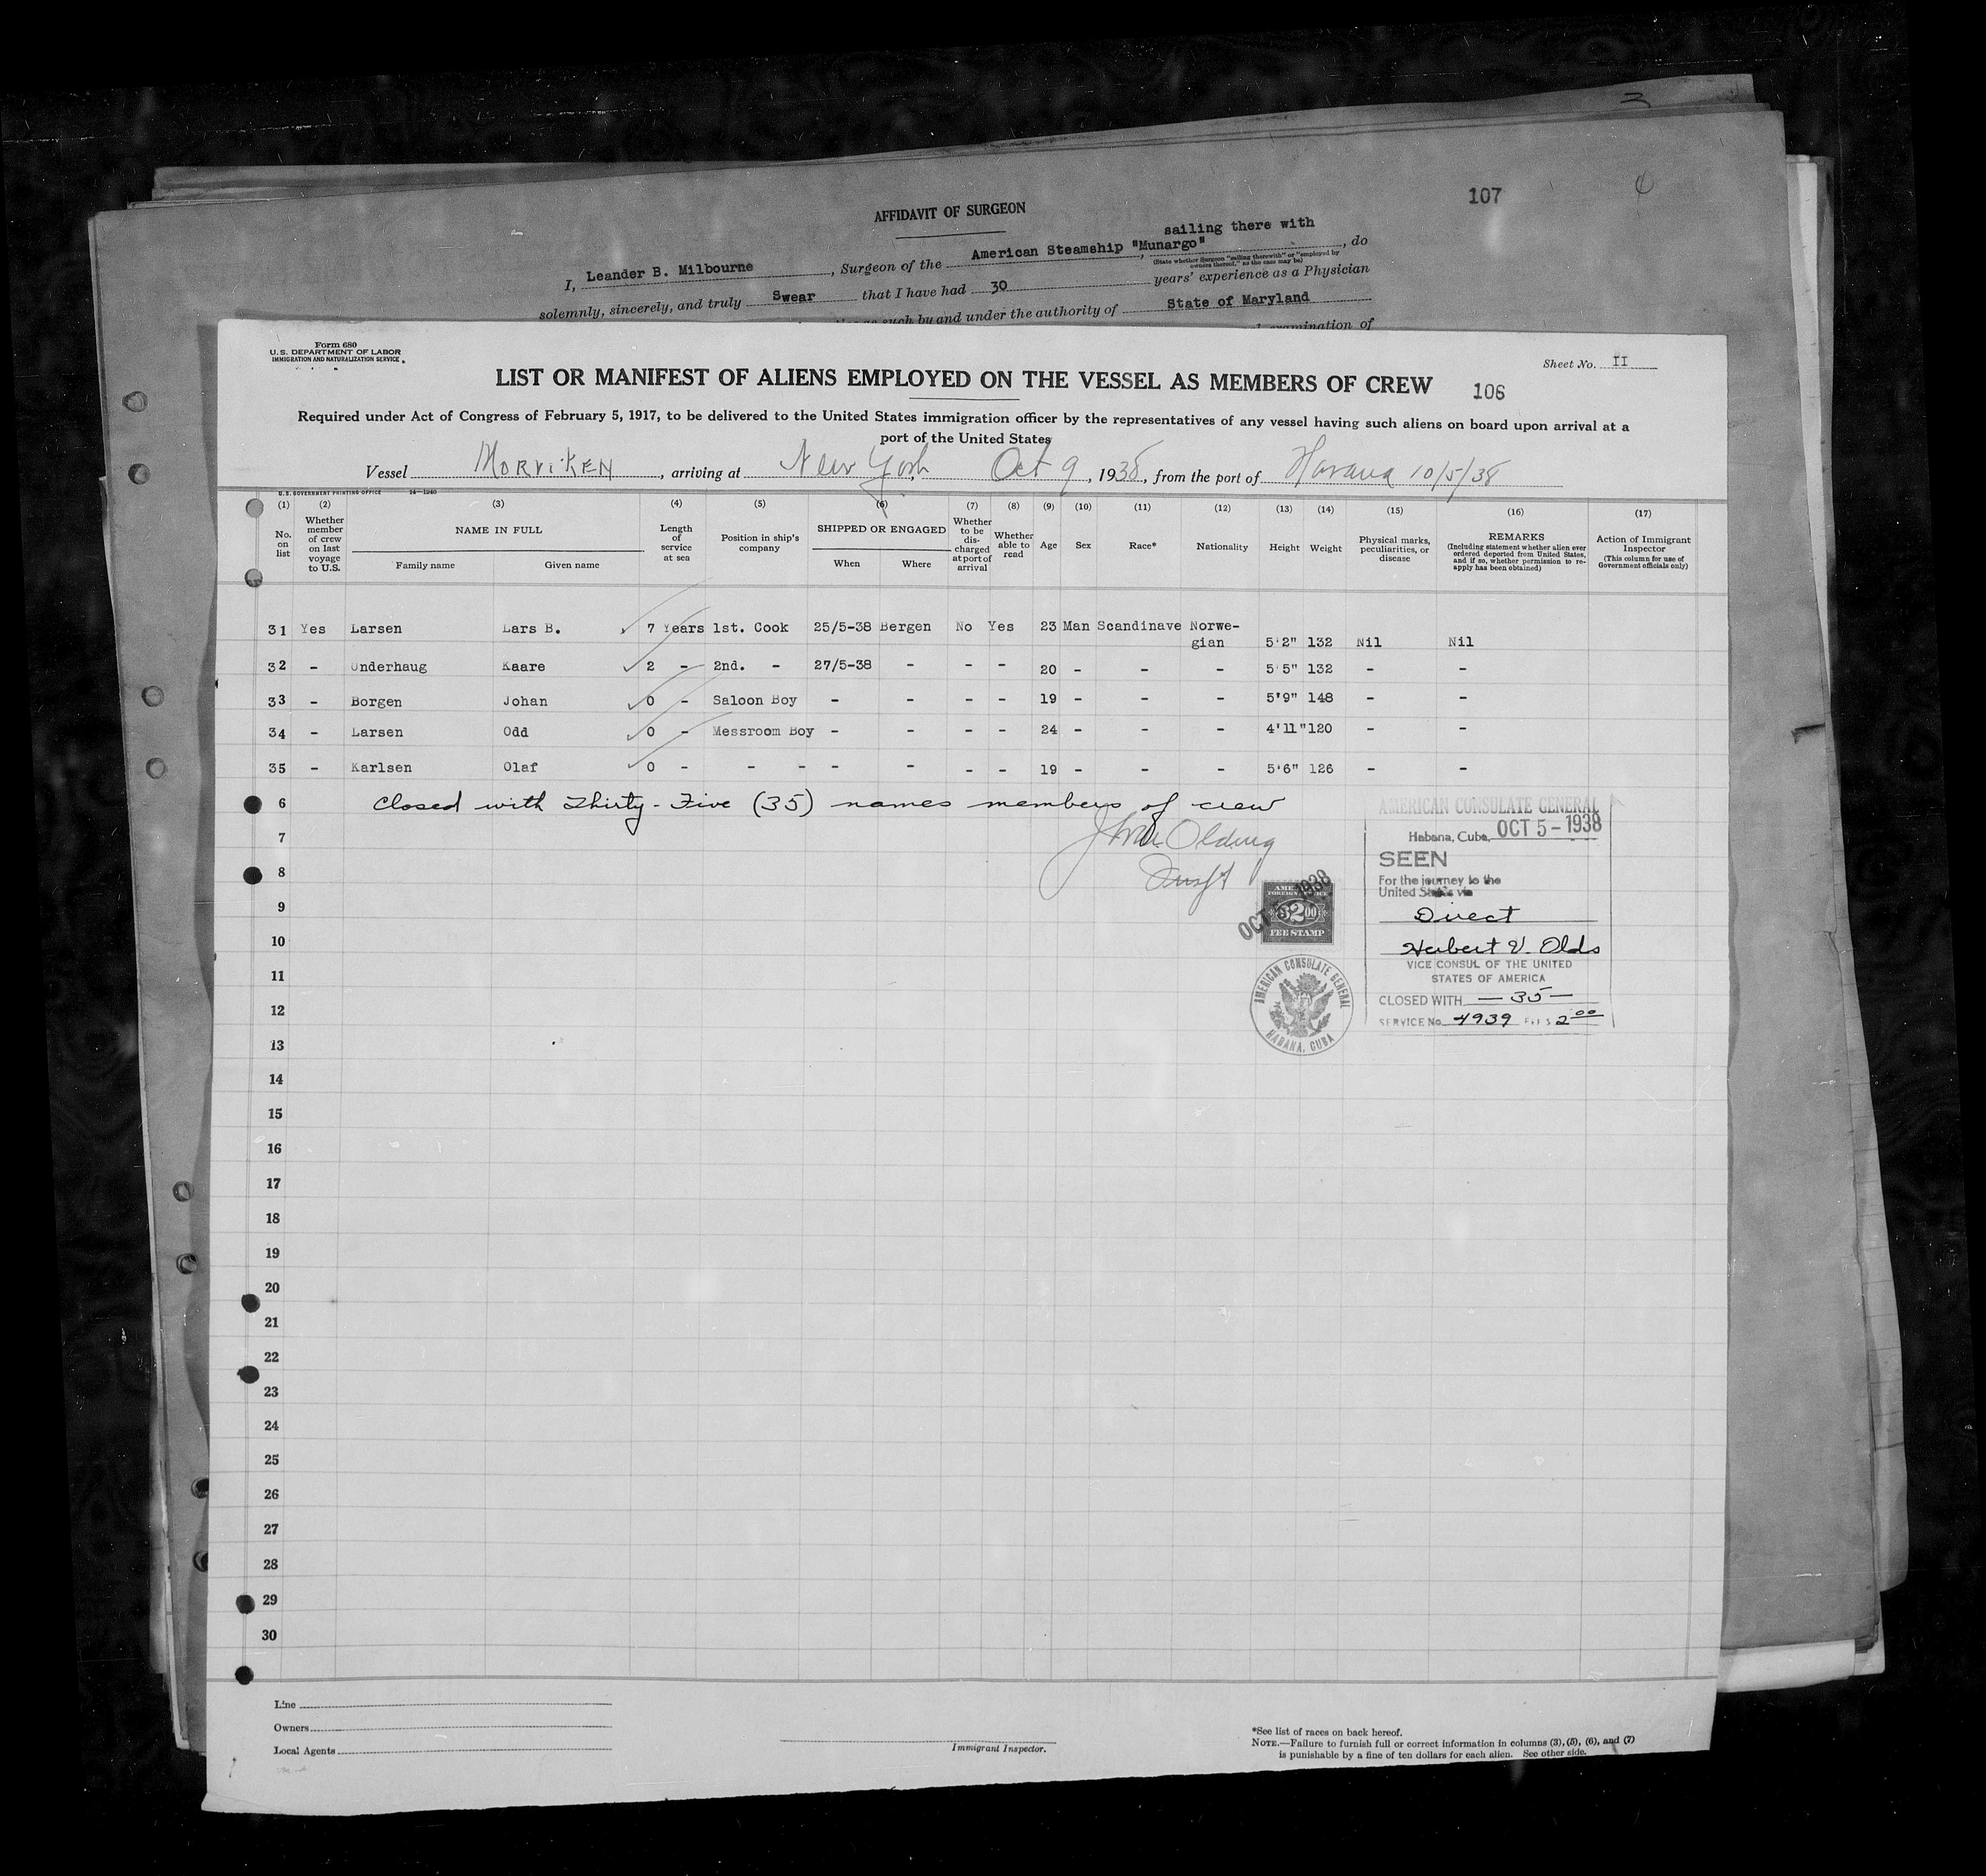 3
107
AFFIDAVIT OF SURGEON
sailing there with
I, Leander B. Milbourne, Surgeon of the American Steamship "Munargo", do
(State whether Surgeon "sailing therewith" or "employed by owners thereof," as the case may be)
solemnly, sincerely, and truly Swear that I have had 30 years' experience as a Physician
such by and under the authority of State of Maryland
examination of
Form 680
U.S. DEPARTMENT OF LABOR
IMMIGRATION AND NATURALIZATION SERVICE
Sheet No. II
LIST OR MANIFEST OF ALIENS EMPLOYED ON THE VESSEL AS MEMBERS OF CREW
106
Required under Act of Congress of February 5, 1917, to be delivered to the United States immigration officer by the representatives of any vessel having such aliens on board upon arrival at a
port of the United States
Vessel MORVIKEN, arriving at New York, Oct 9, 1938, from the port of Havana 10/5/38
U.S. GOVERNMENT PRINTING OFFICE 14—1240
(1) (2) (3) (4) (5) (6) (7) (8) (9) (10) (11) (12) (13) (14) (15) (16) (17)
No. on list
Whether member of crew on last voyage to U.S.
NAME IN FULL
Family name
Given name
Length of service at sea
Position in ship's company
SHIPPED OR ENGAGED
When
Where
Whether to be discharged at port of arrival
Whether able to read
Age
Sex
Race*
Nationality
Height
Weight
Physical marks, peculiarities, or disease
REMARKS
(Including statement whether alien ever ordered deported from United States, and if so, whether permission to re-apply has been obtained)
Action of Immigrant Inspector
(This column for use of Government officials only)
31 Yes Larsen Lars B. 7 Years 1st. Cook 25/5-38 Bergen No Yes 23 Man Scandinave Norwe-
gian 5'2" 132 Nil Nil
32 - Underhaug Kaare 2 - 2nd. - 27/5-38 - - - 20 - - - 5'5" 132 - -
33 - Borgen Johan 0 - Saloon Boy - - - - 19 - - - 5'9" 148 - -
34 - Larsen Odd 0 - Messroom Boy - - - - 24 - - - 4'11" 120 - -
35 - Karlsen Olaf 0 - - - - - - - - 19 - - - 5'6" 126 - -
6 Closed with Thirty-Five (35) names members of crew
7
8
9
10
11
12
13
14
15
16
17
18
19
20
21
22
23
24
25
26
27
28
29
30
AMERICAN CONSULATE GENERAL
Habana, Cuba, OCT 5-1938
SEEN
For the journey to the
United States via
Direct
Herbert V. Olds
VICE CONSUL OF THE UNITED
STATES OF AMERICA
CLOSED WITH — 35 —
SERVICE No. 4939 FEE $ 2.00
OCT 5 1938
$2.00
FEE STAMP
AMERICAN CONSULATE GENERAL
HABANA, CUBA
Line
Owners
Local Agents
Immigrant Inspector.
*See list of races on back hereof.
NOTE.—Failure to furnish full or correct information in columns (3), (5), (6), and (7)
is punishable by a fine of ten dollars for each alien. See other side.